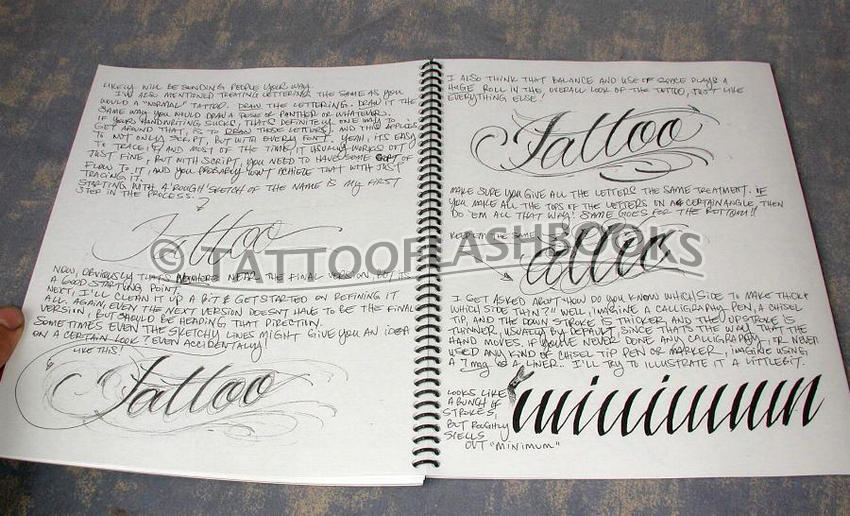 LIKELY WILL BE SENDING PEOPLE YOUR WAY.
I'VE ALSO MENTIONED TREATING LETTERING THE SAME AS YOU
WOULD A "NORMAL" TATTOO. DRAW THE LETTERING. DRAW IT THE
SAME WAY YOU WOULD DRAW A ROSE OR PANTHER OR WHATEVER.
IF YOUR HANDWRITING SUCKS, THAT'S DEFINITELY ONE WAY TO
GET AROUND THAT, IS TO DRAW THOSE LETTERS! AND THIS APPLIES
TO NOT ONLY SCRIPT, BUT WITH EVERY FONT. YEAH, ITS EASY
TO TRACE IT, AND MOST OF THE TIME, IT USUALLY WORKS OUT
JUST FINE, BUT WITH SCRIPT, YOU NEED TO HAVE SOME SORT OF
FLOW TO IT, AND YOU PROBABLY WON'T ACHIEVE THAT WITH JUST
TRACING IT.
STARTING WITH A ROUGH SKETCH OF THE NAME IS MY FIRST
STEP IN THE PROCESS.
Tattoo
NOW, OBVIOUSLY THAT'S NOWHERE NEAR THE FINAL VERSION, BUT ITS
A GOOD STARTING POINT.
NEXT, I'LL CLEAN IT UP A BIT & GET STARTED ON REFINING IT
ALL. AGAIN, EVEN THE NEXT VERSION DOESN'T HAVE TO BE THE FINAL
VERSION, BUT SHOULD BE HEADING THAT DIRECTION.
SOMETIMES EVEN THE SKETCHY LINES MIGHT GIVE YOU AN IDEA
ON A CERTAIN LOOK? EVEN ACCIDENTALLY!
LIKE THIS!
Tattoo
I ALSO THINK THAT BALANCE AND USE OF SPACE PLAYS A
HUGE ROLL IN THE OVERALL LOOK OF THE TATTOO, JUST LIKE
EVERYTHING ELSE!
Tattoo
MAKE SURE YOU GIVE ALL THE LETTERS THE SAME TREATMENT. IF
YOU MAKE ALL THE TOPS OF THE LETTERS ON A CERTAIN ANGLE, THEN
DO 'EM ALL THAT WAY! SAME GOES FOR THE BOTTOM!!
KEEP 'EM THE SAME
I GET ASKED ABOUT "HOW DO YOU KNOW WHICH SIDE TO MAKE THICK &
WHICH SIDE THIN?" WELL, IMAGINE A CALLIGRAPHY PEN, A CHISEL
TIP, AND THE DOWN STROKE IS THICKER, AND THE UPSTROKE IS
THINNER, USUALLY BY DEFAULT, SINCE THATS THE WAY THAT THE
HAND MOVES. IF YOU'VE NEVER DONE ANY CALLIGRAPHY, OR NEVER
USED ANY KIND OF CHISEL TIP PEN OR MARKER, IMAGINE USING
A 7 mag AS A LINER.. I'LL TRY TO ILLUSTRATE IT A LITTLE BIT.
LOOKS LIKE
A BUNCH OF
STROKES,
BUT ROUGHLY
SPELLS
OUT "MINIMUM"
minimum
© TATTOOFLASHBOOKS